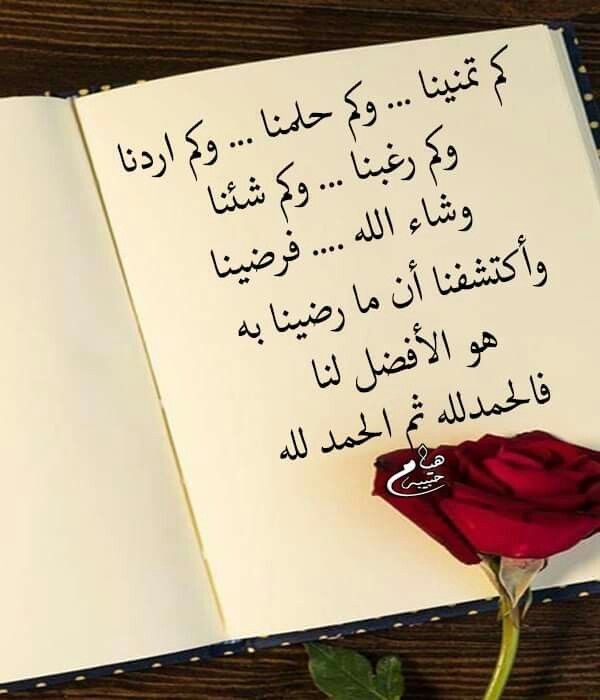 كم تمنينا ... وكم حلمنا ... وكم اردنا
وكم رغبنا ... وكم شئنا
وشاء الله .... فرضينا
وأكتشفنا أن ما رضينا به
هو الأفضل لنا
فالحمدلله ثم الحمد لله
هيام
حبيبه